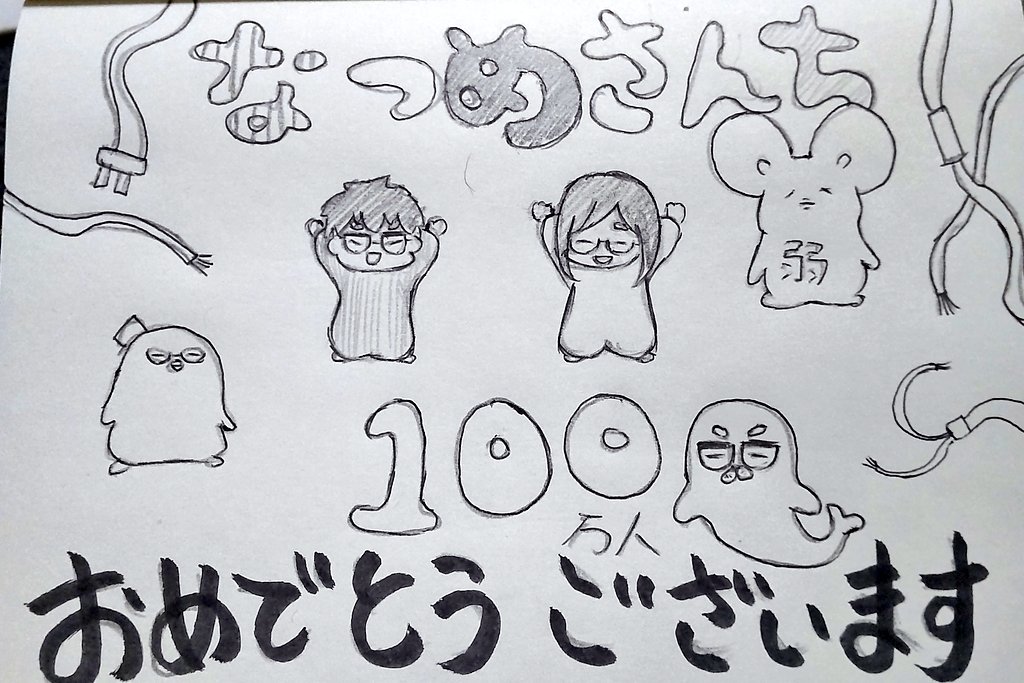 なつめさんち
弱
100
万人
おめでとうございます